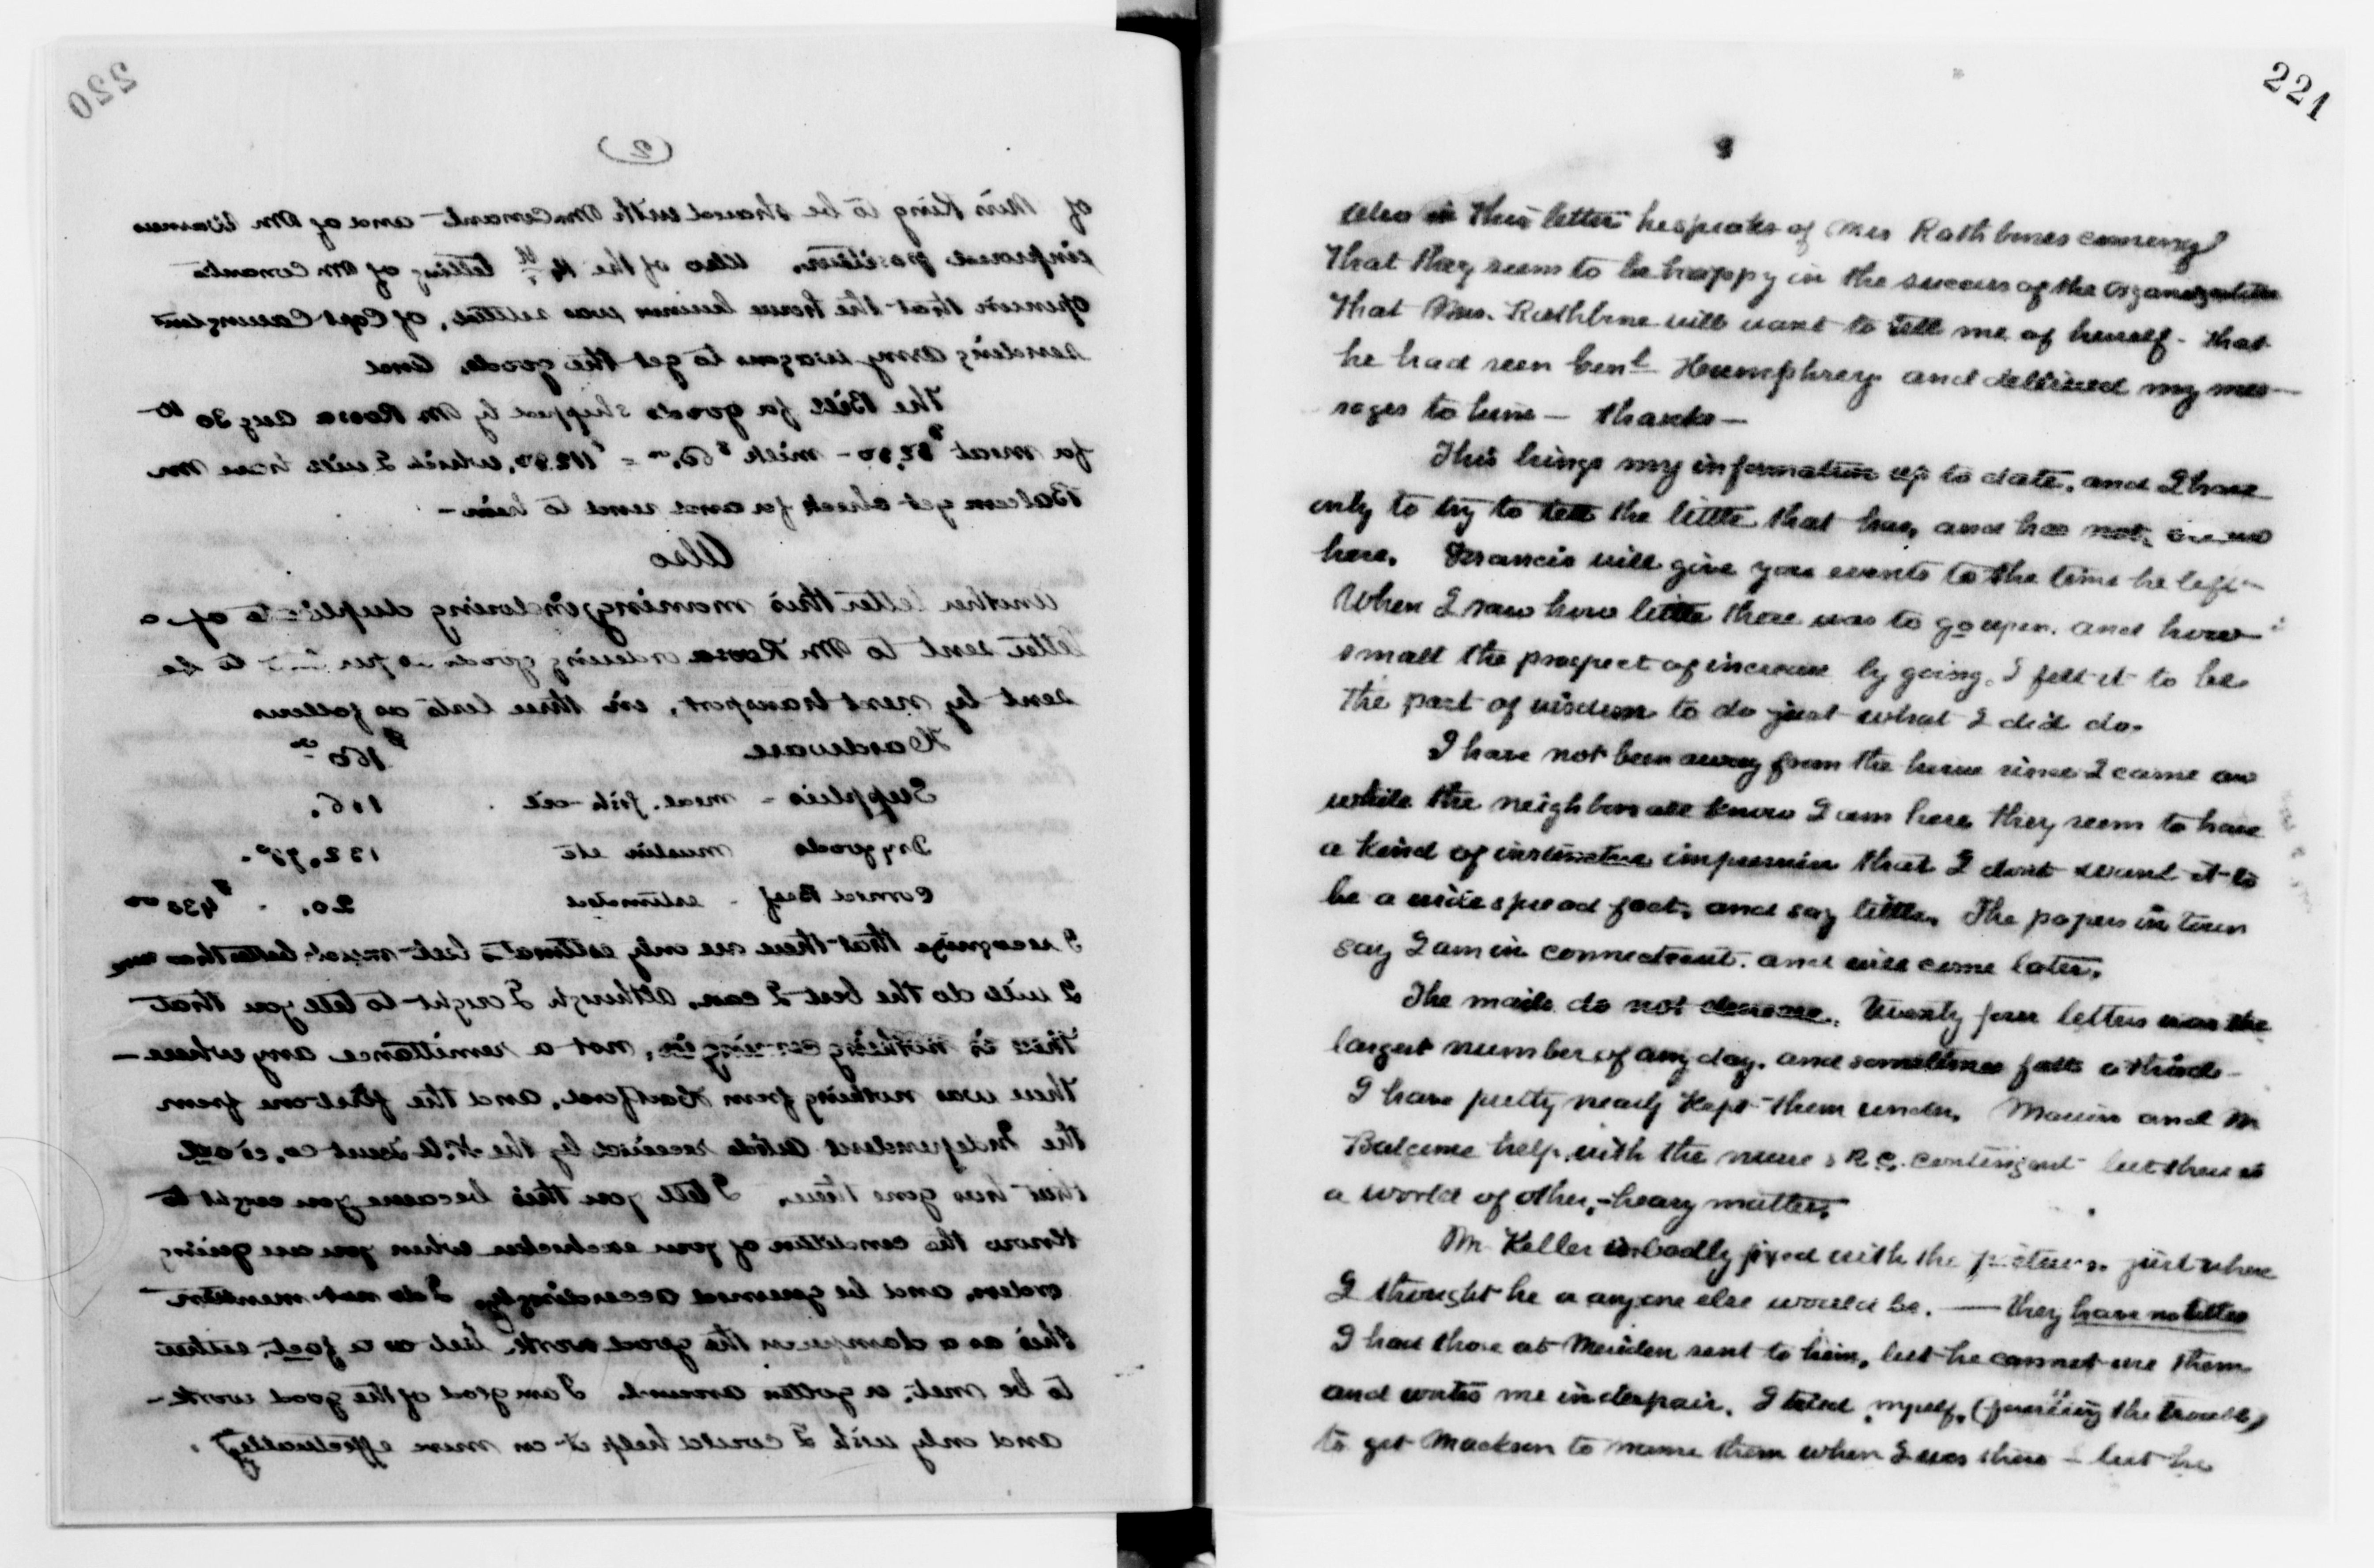 220
(2)
of Miss King to be shared with Mr Cemant and of Mr Warners
improved position. Also of the 14th telling of Mr Cemants
opinion that the horse business was settled, of Capt
sending army wagons to get the goods. And
The Bill for goods shipped by Mr Rosa Aug 30th
for meat $52.50 - milk $60.00 = $112.50, which I will have Mr
Balcom get check for and send to him -
Also
Another letter this morning, inclosing duplicate of a
letter sent to Mr Rosa ordering goods as per to be
sent by next transport, in three lists as follows
Hardware $160.00
Supplies - meal, fish-oil 116.
Drygoods muslin etc 132.75.
Corned Beef - estimated 20. - $430.00
I recognize that these are only estimates but much better than
I will do the best I can, although I ought to tell you that
there is nothing coming in, not a remittance anywhere -
there was nothing from Hartford, and the first one from
the Independent Order received by the N.Y. is all
that has gone there. I tell you this because you ought to
know the condition of your exchequer when you are giving
orders, and be governed accordingly. I do not mention
this as a damper on the good work, but as a fact, either
to be met, or gotten around. I am glad of the good work -
and only wish I could help it on more effectually.
221
3
Also in this letter he speaks of Mrs Rathbones coming
That they seem to be happy in the success of the organization
That Mrs. Rathbone will want to tell me of herself - that
he had seen Genl Humphrey and delivered my mes-
sages to him - thanks -
This brings my information up to date, and I have
only to try to tell the little that has, and has not,
here. Francis will give you events to the time he left
When I saw how little there was to go upon, and how
small the prospect of increase by going, I felt it to be
the part of wisdom to do just what I did do.
I have not been away from the house since I came and
while the neighbors all know I am here they seem to have
a kind of instinctive impression that I dont want it to
be a wide spread fact, and say little. The papers in town
say I am in Connecticut. and will come later.
The mails do not decrease. Twenty four letters was the
largest number of any day. and sometimes falls a third -
I have pretty nearly kept them under. and Mr
Balcome help with the nurse & R.C. contingent but there is
a world of other, - heavy matter.
Mr Keller is badly fixed with the pictures just where
I thought he or anyone else would be. - they have no titles
I had those at Meriden sent to him, but he cannot use them
and writes me in despair. I tried myself, (foreseeing the trouble)
to get to name them when I was there - but he